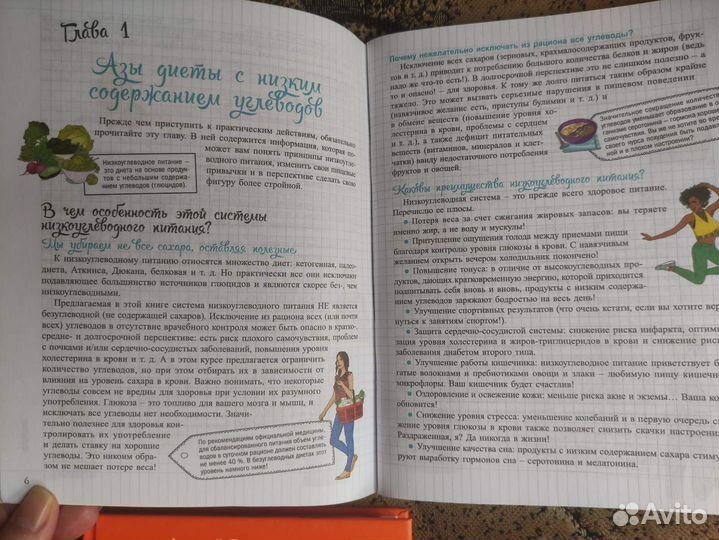 Глава 1
Азы диеты с низким
содержанием углеводов
Прежде чем приступить к практическим действиям, обязательно
прочитайте эту главу. В ней содержится информация, которая по-
может вам понять принципы низкоугле-
водного питания, изменить свои пищевые
привычки и в перспективе сделать свою
фигуру более стройной.
Низкоуглеводное питание –
это диета на основе продук-
тов с небольшим содержани-
ем углеводов (глюцидов).
В чем особенность этой системы
низкоуглеводного питания?
Мы убираем не все сахара, оставляя полезные
К низкоуглеводному питанию относятся множество диет: кетогенная, палео-
диета, Аткинса, Дюкана, белковая и т. д. Но практически все они исключают
подавляющее большинство источников глюцидов и являются скорее без-, чем
низкоуглеводными.
Предлагаемая в этой книге система низкоуглеводного питания НЕ является
безуглеводной (не содержащей сахаров). Исключение из рациона всех (или почти
всех) углеводов в отсутствие врачебного контроля может быть опасно в кратко-,
средне- и долгосрочной перспективе: есть риск плохого самочувствия, проблем
с почками и/или сердечно-сосудистых заболеваний, повышения уровня
холестерина в крови и т. д. А в этом курсе предлагается ограничить
количество углеводов, но при этом отбирать их в зависимости от
влияния на уровень сахара в крови. Важно понимать, что некоторые
углеводы совсем не вредны для здоровья при условии их разумного
употребления. Глюкоза – это топливо для вашего мозга и мышц, и
исключать все углеводы нет необходимости. Значи-
тельно полезнее для здоровья кон-
тролировать их употребление
и делать ставку на хорошие
углеводы. Это никоим обра-
зом не мешает потере веса!
По рекомендациям официальной медицины,
для сбалансированного питания объем угле-
водов в суточном рационе должен составлять
не менее 40 %. В безуглеводных диетах этот
уровень намного ниже!
6
Почему нежелательно исключать из рациона все углеводы?
Исключение всех сахаров (зерновых, крахмалосодержащих продуктов, фрук-
тов и т. д.) приводит к потреблению большого количества белков и жиров (ведь
надо же что-то есть!). В долгосрочной перспективе это не слишком полезно – а
то и опасно! – для здоровья. К тому же долго питаться таким образом крайне
тяжело. Это может вызвать серьезные нарушения в пищевом поведении
(навязчивое желание есть, приступы булимии и т. д.) и
в обмене веществ (повышение уровня хо-
лестерина в крови, проблемы с сердцем
и т. д.), а также дефицит питательных
веществ (витаминов, минералов и клет-
чатки) ввиду недостаточного потребления
фруктов и овощей.
Значительное сокращение количества
углеводов уменьшает образование в о
танизме серотонина – гормона хорошего
самочувствия. Вы же не хотите во время
своего курса похудания быть подавленной
и в плохом настроении?
Каковы преимущества низкоуглеводного питания?
Низкоуглеводная система – это прежде всего здоровое питание.
Перечислю ее плюсы.
• Потеря веса за счет сжигания жировых запасов: вы теряете
именно жир, а не воду и мускулы!
• Притупление ощущения голода между приемами пищи
благодаря контролю уровня глюкозы в крови. С навязчивым
желанием открыть вечером холодильник покончено!
• Повышение тонуса: в отличие от высокоуглеводных про-
дуктов, дающих кратковременную энергию, которой приходится
подпитывать себя вновь и вновь, продукты с низким содержа-
нием углеводов заряжают бодростью на весь день!
• Улучшение спортивных результатов (что очень кстати, если вы хотите вер-
нуться к занятиям спортом!).
• Защита сердечно-сосудистой системы: снижение риска инфаркта, оптими-
зация уровня холестерина и жиров-триглицеридов в крови и снижение риска
заболевания диабетом второго типа.
• Улучшение работы кишечника: низкоуглеводное питание приветствует бо-
гатые волокнами и пребиотиками овощи и злаки – любимую пищу кишечной
микрофлоры. Ваш кишечник будет счастлив!
• Оздоровление и освежение кожи: меньше риска акне и экземы… Ваша кожа
обновится!
• Снижение уровня стресса: уменьшение колебаний и в первую очередь сни-
жение уровня глюкозы в крови также позволяет снизить скачки настроения.
Раздраженная, я? Да никогда в жизни!
• Улучшение качества сна: продукты с низким содержанием сахара стиму-
лируют выработку гормонов сна – серотонина и мелатонина.
Avito